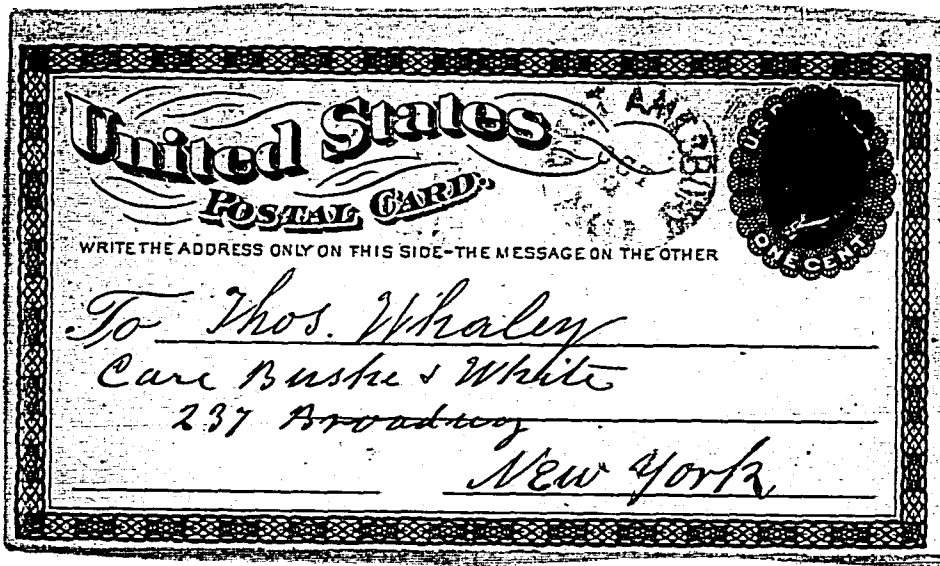 United States
POSTAL CARD.
WRITE THE ADDRESS ONLY ON THIS SIDE-THE MESSAGE ON THE OTHER
U.S.
ONE CENT
To Thos. Whaley
Care Bushe & White
237 Broadway
New York